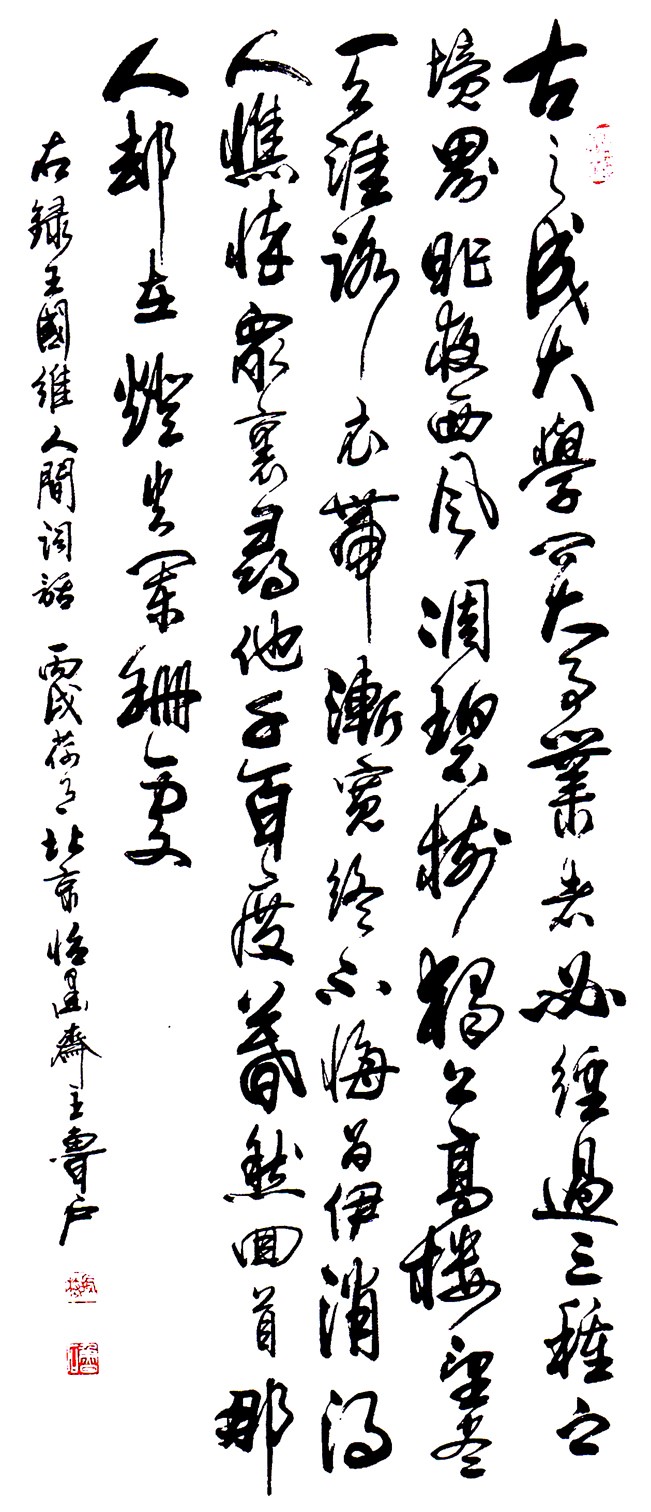 古之成大學問大事業者必經過三種之
境界昨夜西風凋碧樹獨上高樓望盡
天涯路衣帶漸寬終不悔為伊消得
人憔悴眾裏尋他千百度驀然回首那
人却在燈火闌珊處
右錄王國維人間詞話 丙戌荷月北京怡墨齋主魯